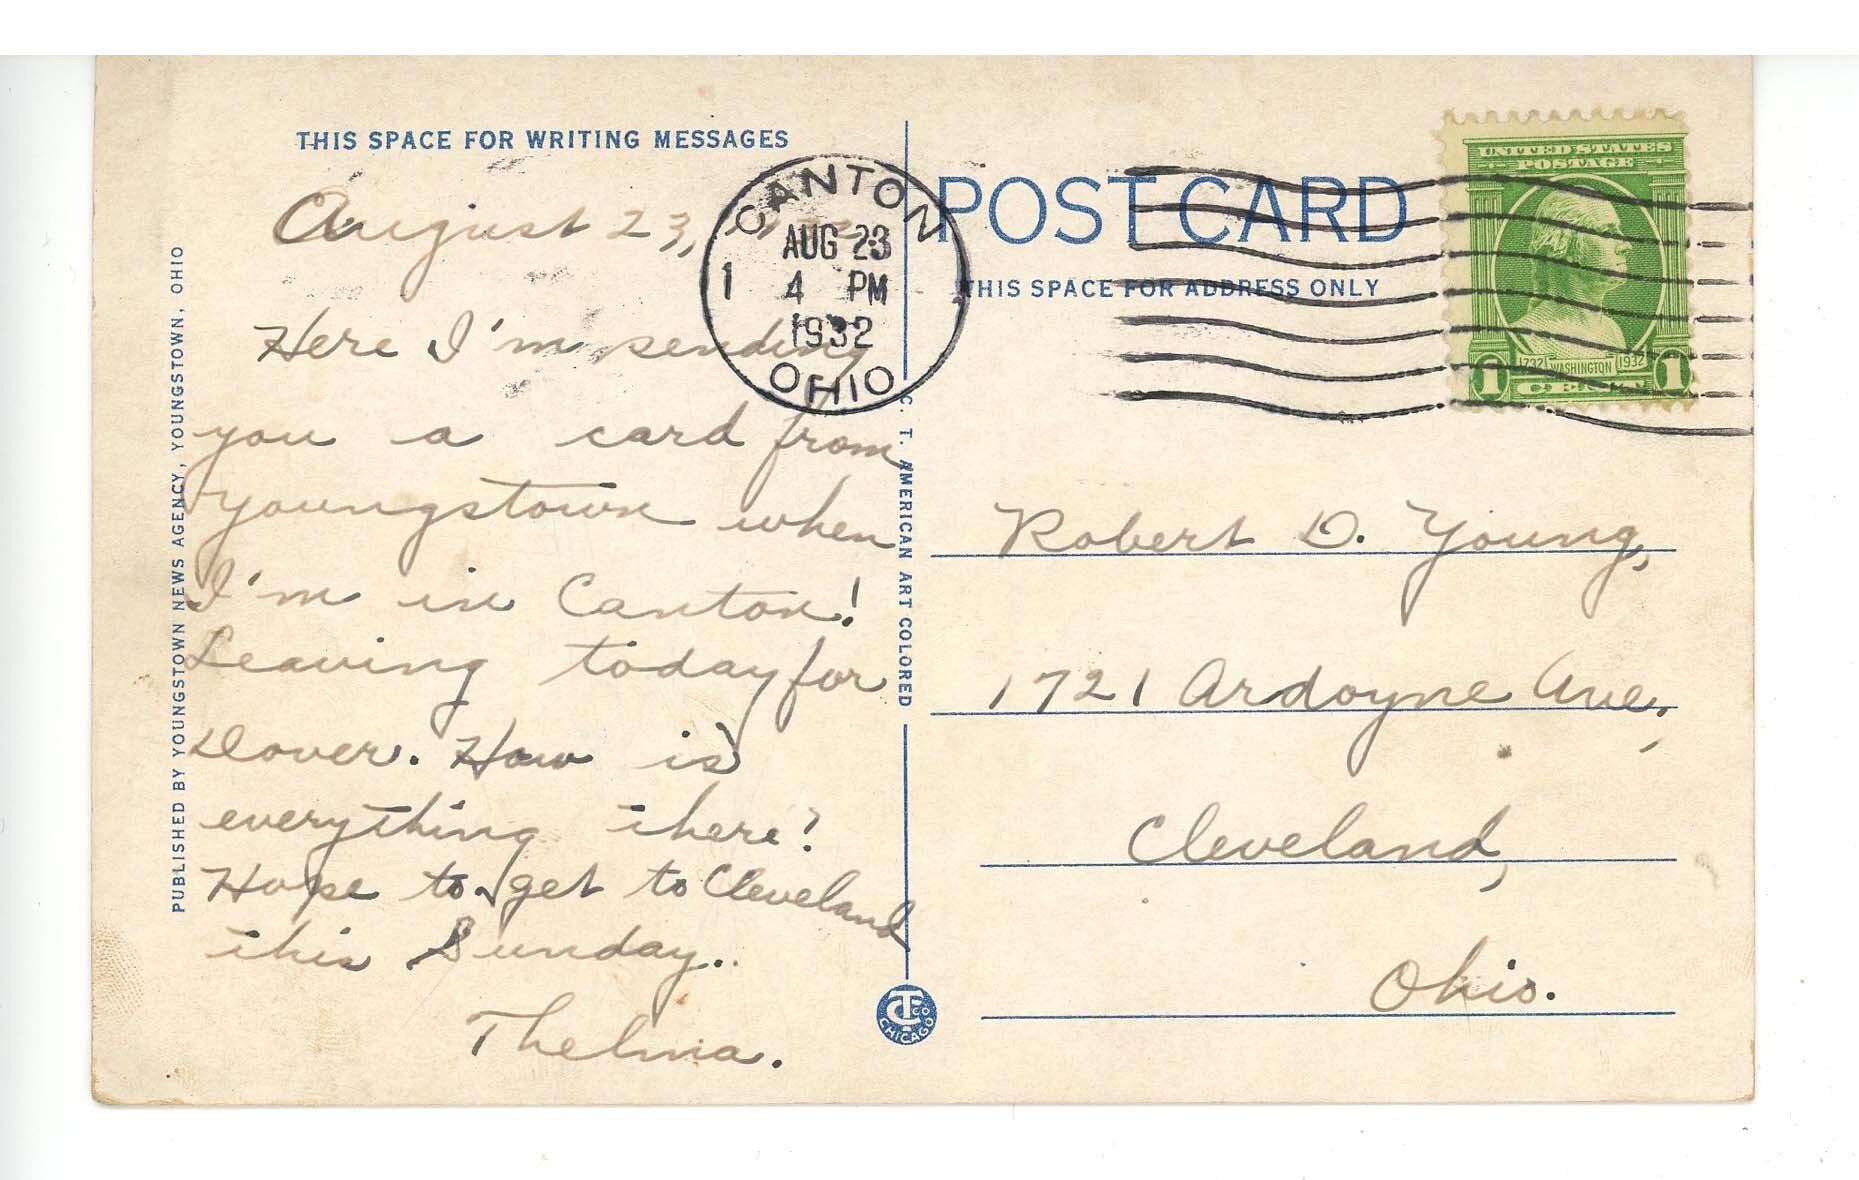 THIS SPACE FOR WRITING MESSAGES
August 23,
Here I'm sending
you a card from
Youngstown when
I'm in Canton!
Leaving today for
Dover. How is
everything there?
Hope to get to Cleveland
this Sunday..
Thelma.
PUBLISHED BY YOUNGSTOWN NEWS AGENCY, YOUNGSTOWN, OHIO
CANTON
AUG 23
1 4 PM
1932
OHIO
C. T. AMERICAN ART COLORED
CT CO
CHICAGO
POST CARD
THIS SPACE FOR ADDRESS ONLY
UNITED STATES
POSTAGE
1732 WASHINGTON 1932
1 CENT 1
Robert D. Young,
1721 Ardoyne Ave.,
Cleveland,
Ohio.